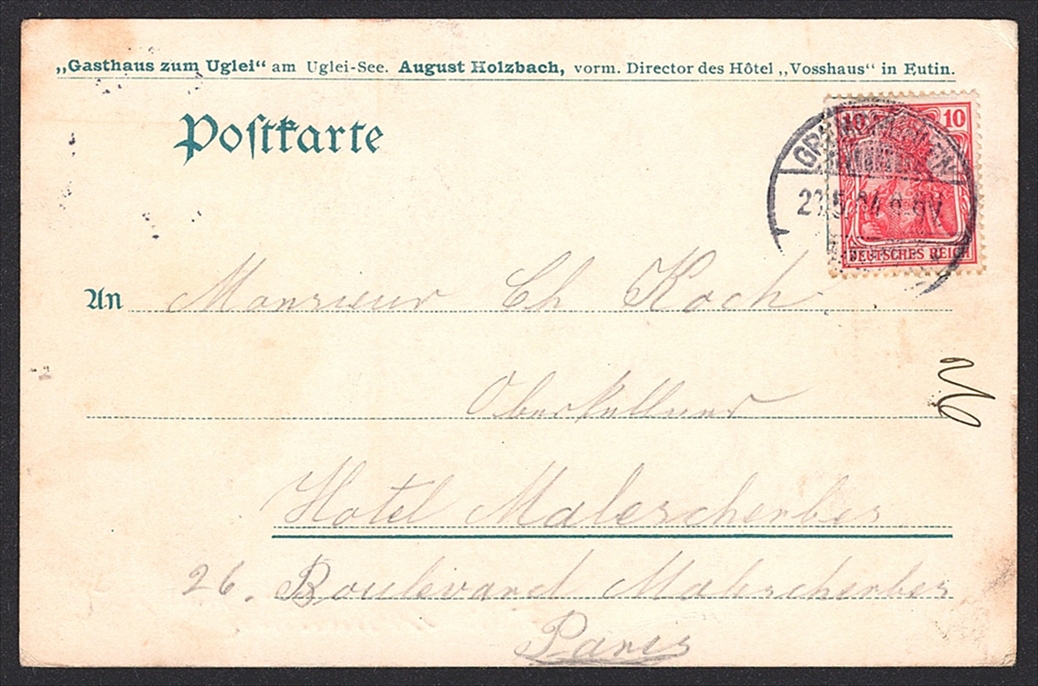 „Gasthaus zum Uglei“ am Uglei-See. August Holzbach, vorm. Director des Hôtel „Vosshaus“ in Eutin.
Poſtkarte
10
DEUTSCHES REICH
An Monsieur Ch Koch
Oberkellner
Hotel Malescherbes
26. Boulevard Malescherbes
Paris